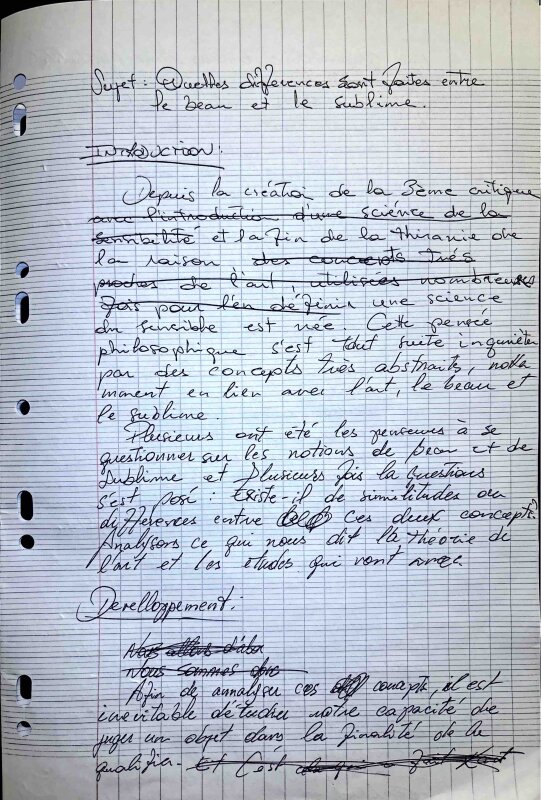 Sujet : Quelles différences sont faites entre
le beau et le sublime.
INTRODUCTION :
Depuis la création de la 3ème critique
avec l'introduction d'une sciénce de la
sensibilité et la fin de la thiranie de
la raison des concepts trés
proches de l'art, utilisées nombreuses
fois pour l'en définir une science
du sensible est née. Cette pensée
philosophique s'est tout suite inquiéter
par des concepts très abstraits, nota
mment en lien avec l'art, le beau et
le sublime.
Plusieurs ont été les penseurs à se
questionner sur les notions de beau et de
sublime et plusieurs fois la questions
s'est posé : Existe-il de similitudes ou
différences entre ces deux concepts?
Analysons ce que nous dit la théorie de
l'art et les études qui vont avec
Dévelloppement :
Nous allons d'abor
Nous sommes
Afin de annaliser ces concepts, il est
inévitable d'étudier notre capacité de
juger un objet dans la finalité de le
qualifier. Et c'est